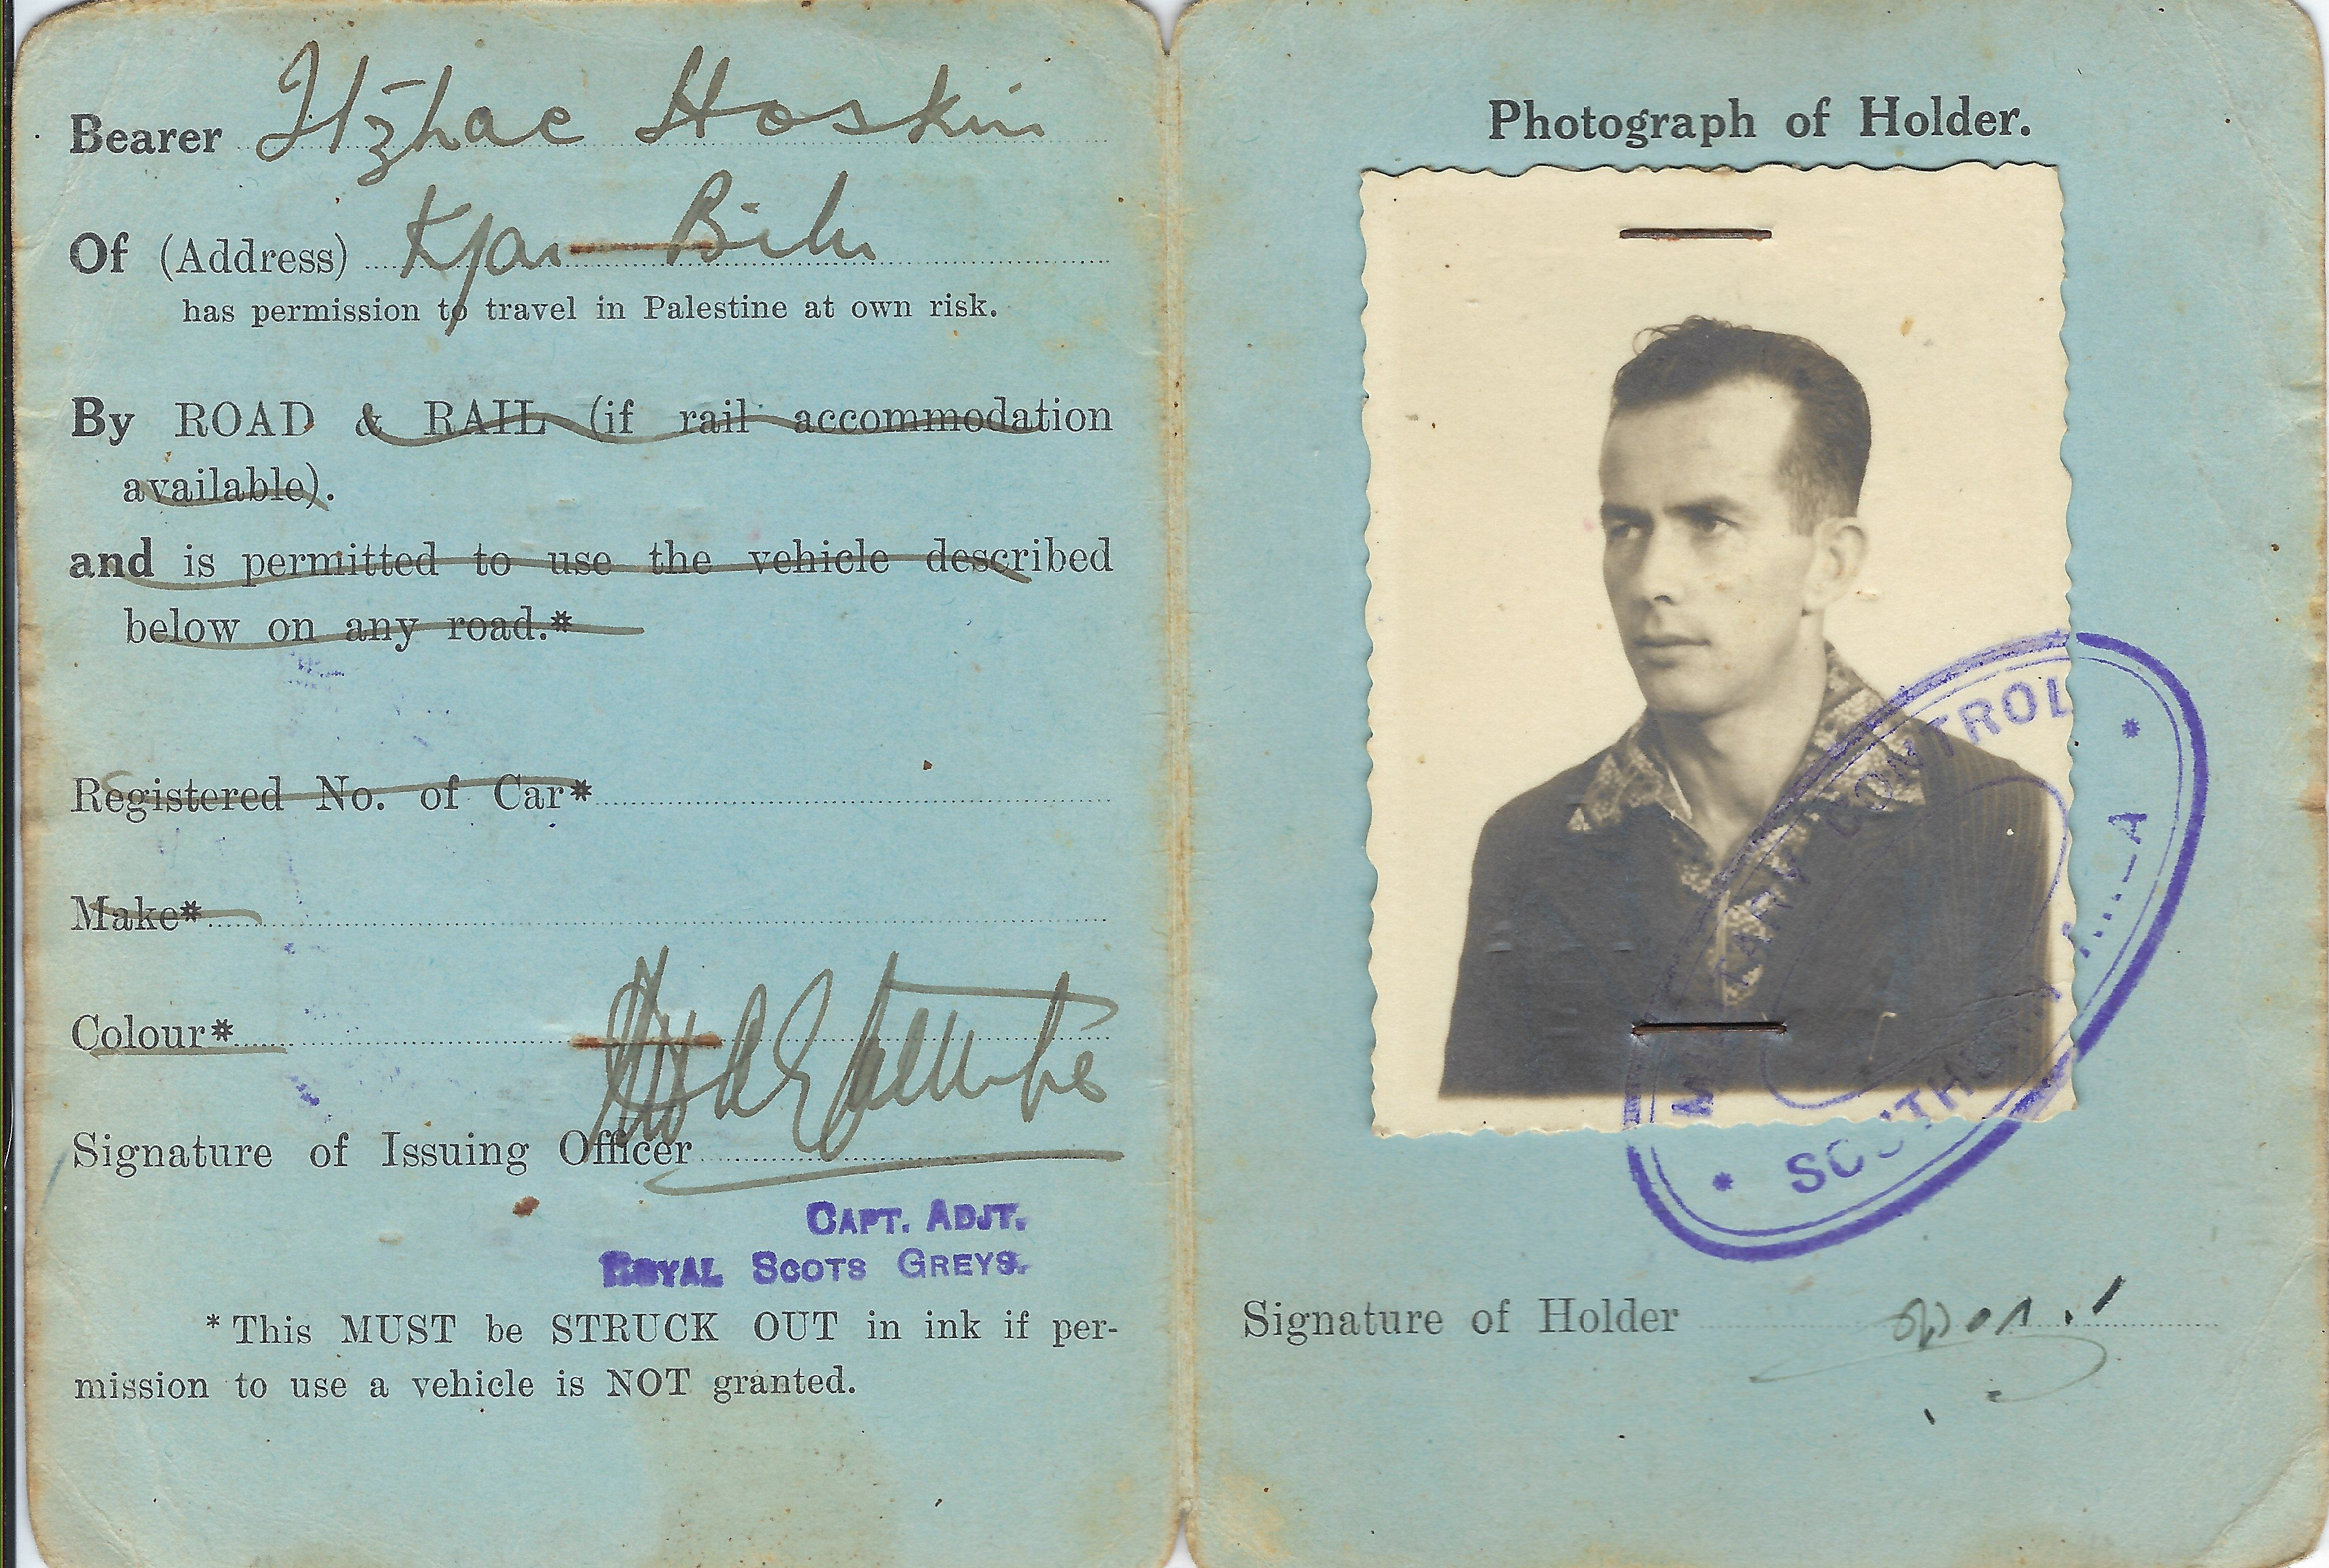 Bearer Itzhac Hoskin
Of (Address) Kfar Bilu
has permission to travel in Palestine at own risk.
By ROAD & RAIL (if rail accommodation
available).
and is permitted to use the vehicle described
below on any road.*
Registered No. of Car*
Make*
Colour*
Signature of Issuing Officer
CAPT. ADJT.
ROYAL SCOTS GREYS.
* This MUST be STRUCK OUT in ink if per-
mission to use a vehicle is NOT granted.
Photograph of Holder.
MILITARY CONTROL
SOUTHERN
Signature of Holder